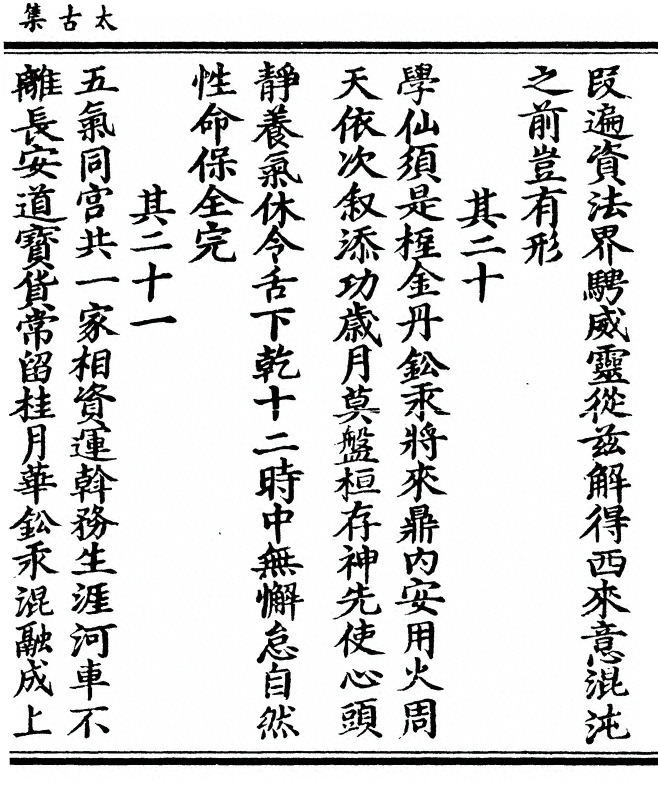 太古集
段遍資法界騁威靈從茲解得西來意混沌
之前豈有形
其二十
學仙須是桱金丹鈆汞將來鼎內安用火周
天依次叙添功歲月莫盤桓存神先使心頭
靜養氣休令舌下乾十二時中無懈怠自然
性命保全完
其二十一
五氣同宫共一家相資運斡務生涯河車不
離長安道寶貨常留桂月華鈆汞混融成上